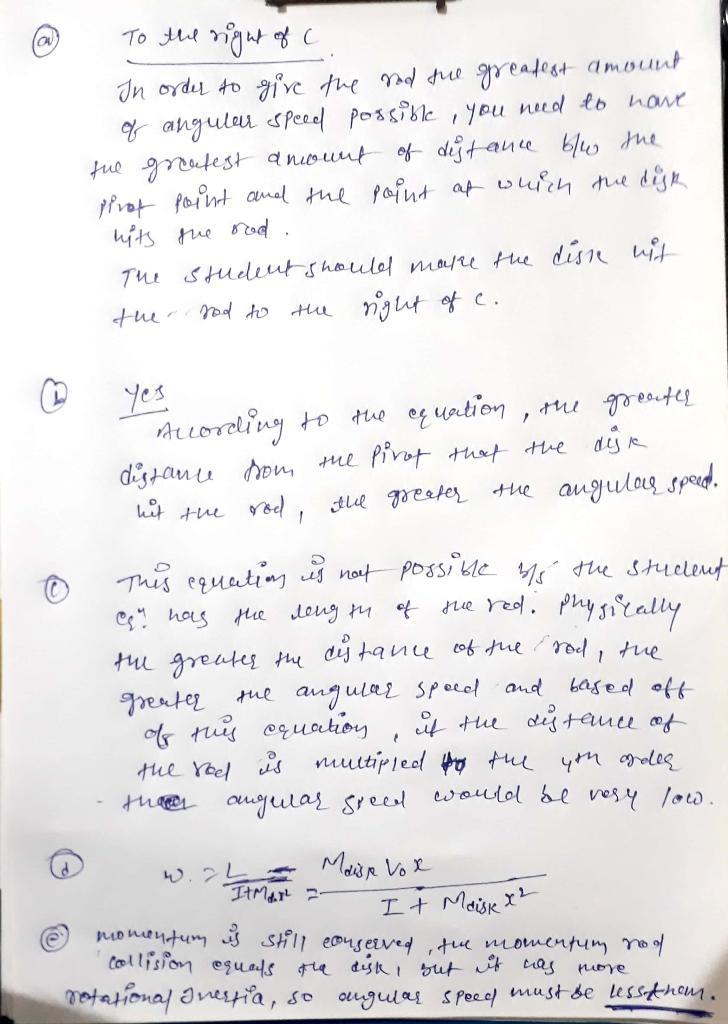 (a) To the right of C
In order to give the rod the greatest amount
of angular speed possible, you need to have
the greatest amount of distance b/w the
pivot point and the point at which the disk
hits the rod.
The student should make the disk hit
the rod to the right of c.
(b) Yes
According to the equation, the greater
distance from the pivot that the disk
hit the rod, the greater the angular speed.
(c) This equation is not possible b/s the student
eqn has the length of the rod. physically
the greater the distance of the rod, the
greater the angular speed and based off
of this equation, if the distance of
the rod is multiplied to the 4th order
the angular speed would be very low.
(d) w. = L / I+Mdx² = Mdisk Vo x / I + Mdisk x²
(e) momentum is still conserved, the momentum rod
collision equals the disk, but it has more
rotational Inertia, so angular speed must be less than.